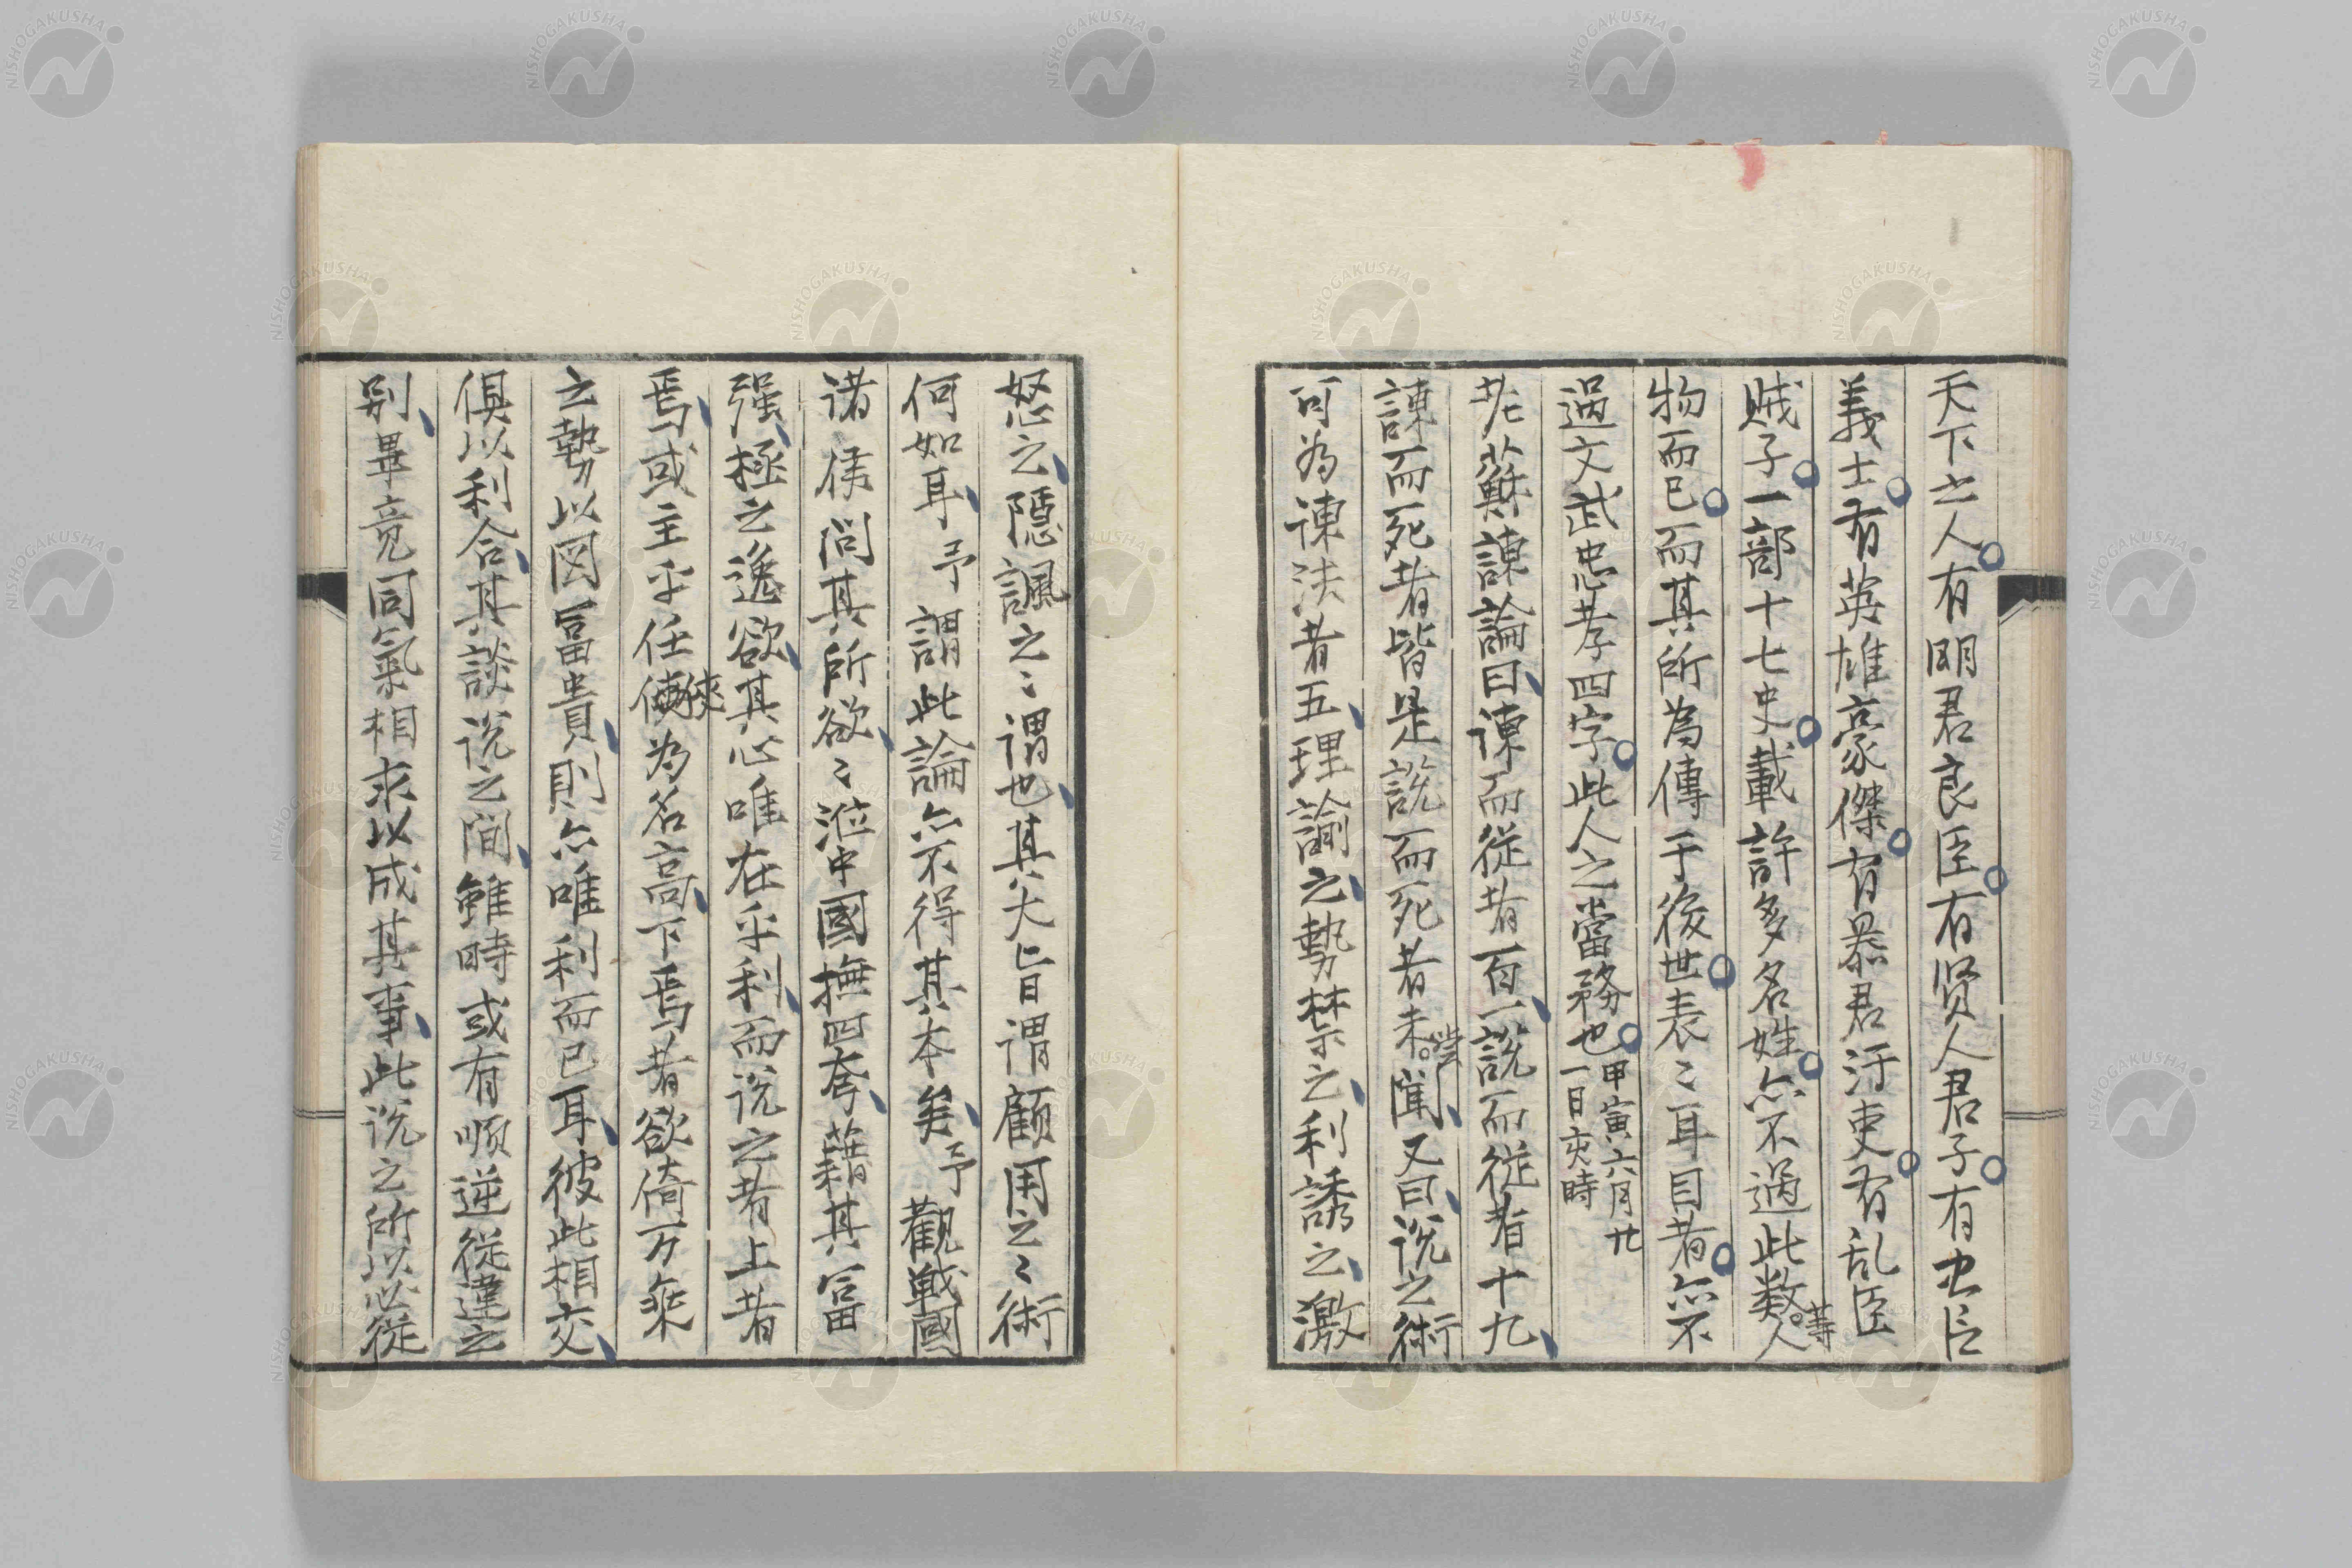 天下之人有明君良臣有賢人君子有忠臣
義士有英雄豪傑有暴君汙吏有乱臣
賊子一部十七史載許多名姓亦不過此数等人
物而已而其所為傳于後世表〻耳目者亦不
過文武忠孝四字此人之當務也甲寅六月廿
一日灾時
老蘇諫論曰諫而従者百一説而従者十九
諫而死者皆是説而死者未嘗聞又曰说之術
可為諫法者五理諭之勢禁之利誘之激
怒之隠諷之〻謂也其大旨謂顧用之〻術
何如耳予謂此論亦不得其本矣予觀戦國
诸侯問其所欲〻涖中國撫四夸藉其富
强極之逸欲其心唯在乎利而说之者上者
焉或主乎任俠為名高下焉者欲倚万乗
之勢以図冨貴則亦唯利而已耳彼此相交
俱以利合其談说之間雖時或有順逆従違之
别畢竟同氣相求以成其事此说之所以必従
NISHOGAKUSHA